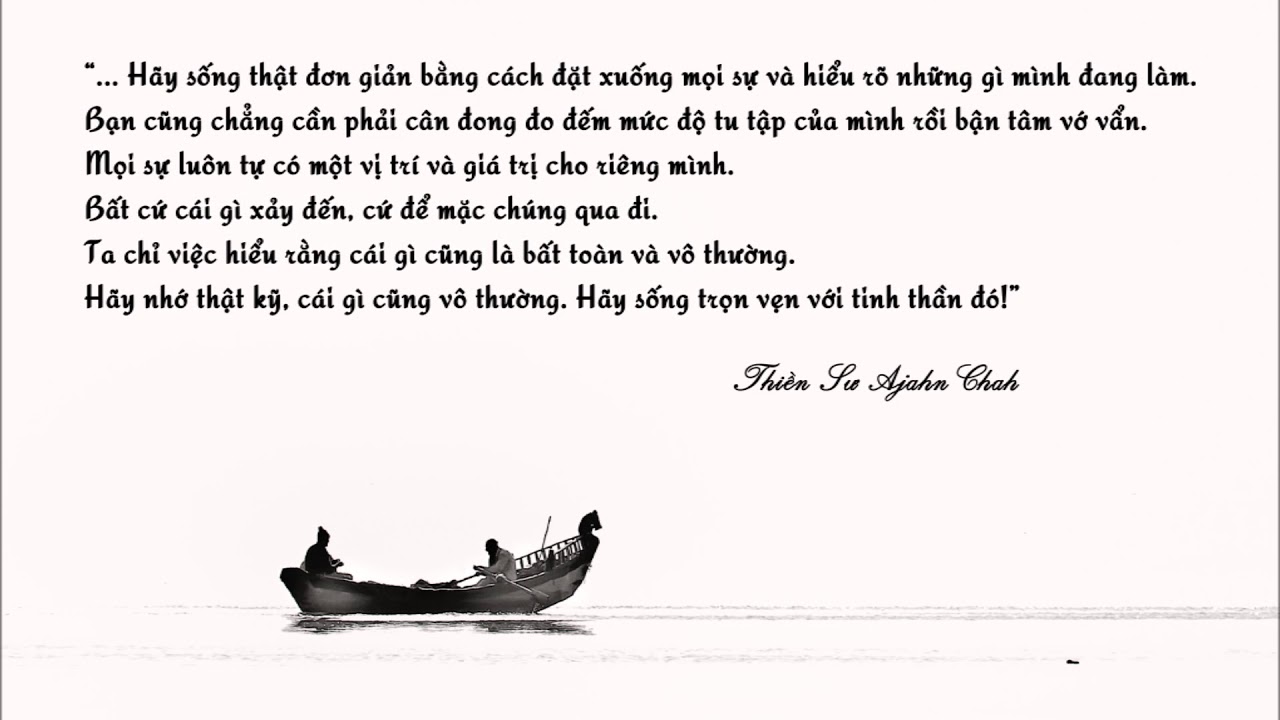 “... Hãy sống thật đơn giản bằng cách đặt xuống mọi sự và hiểu rõ những gì mình đang làm.
Bạn cũng chẳng cần phải cân đong đo đếm mức độ tu tập của mình rồi bận tâm vớ vẩn.
Mọi sự luôn tự có một vị trí và giá trị cho riêng mình.
Bất cứ cái gì xảy đến, cứ để mặc chúng qua đi.
Ta chỉ việc hiểu rằng cái gì cũng là bất toàn và vô thường.
Hãy nhớ thật kỹ, cái gì cũng vô thường. Hãy sống trọn vẹn với tinh thần đó!”
Thiền Sư Ajahn Chah